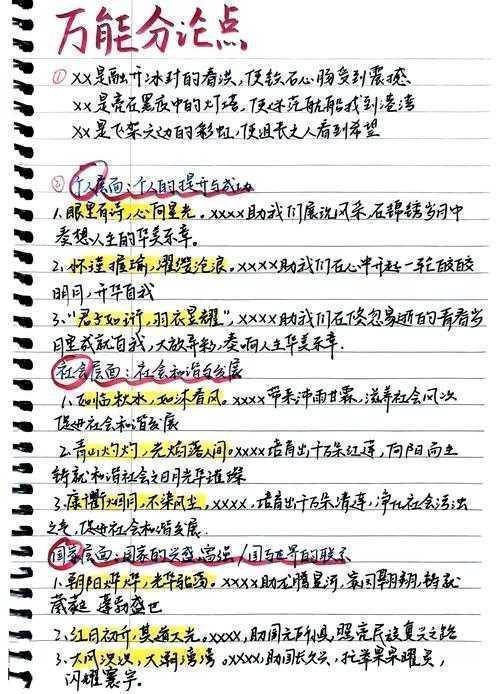 万能分论点
① XX是融开冰封的春洪，使铁石心肠受到震撼、
XX是亮在黑夜中的灯塔，使迷茫航船找到港湾
XX是飞架天边的彩虹，使沮丧之人看到希望
② 个人层面：个人的提升与成功
1. 眼里有诗，心向星光。xxxx助我们展现风采，在锦绣岁月中
奏想人生的华美乐章。
2. 怀瑾握瑜，濯缨沧浪。xxxx助我们在心中升起一轮皎皎
明月，升华自我
3. “君子如珩，羽衣昱耀”，xxxx助我们在倏忽易逝的青春岁
月里成就自我，大放异彩，奏响人生华美乐章.
社会层面：社会和谐与发展
1. 如临秋水，如沐春风。xxxx带来沛雨甘霖，滋养社会风
促进社会和谐发展
2. 青山灼灼，光焰落人间。xxxx培育出千朵红莲，向阳而生
铸就和谐社会之日月光华璀璨
3. 康衢烟月，不染风尘，xxxx，培育出千朵清莲，净化社会污浊
之气，促进社会和谐发展.
国家层面：国家的兴盛富强/国与世界的联系
1. 朝阳烨烨，光华骀荡。xxxx助龙腾星河，家国翱翔，铸就
葳蕤 蓬勃盛世
2. 红日初升，其道大光。xxxx，助国无所惧，照亮民族复兴之路
3. 大风泱泱，大潮滂滂。xxxx，助国长久兴，扛举杲杲曜灵，
闪耀寰宇。